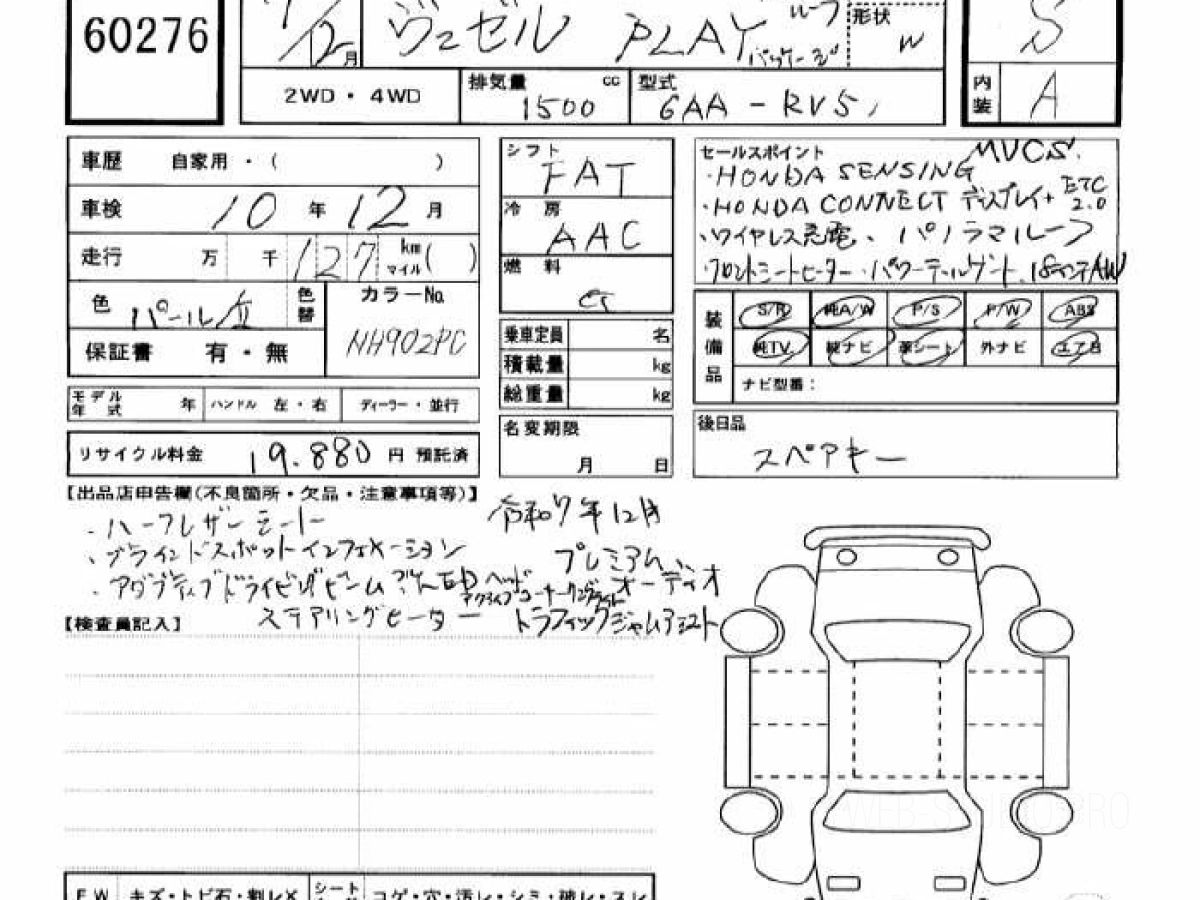 60276
12月
ヴェゼル PLAY パッケージ
形状 W
S
2WD・4WD
排気量 1500 cc
型式 6AA-RV5
内装 A
車歴 自家用・( )
車検 10年 12月
走行 万 千 127 km マイル( )
色 パール
色替
カラーNo. NH902PC
保証書 有・無
モデル年式 年 ハンドル 左・右 ディーラー・並行
リサイクル料金 19.880 円 預託済
シフト FAT
冷房 AAC
燃料
乗車定員 名
積載量 kg
総重量 kg
名変期限 月 日
セールスポイント MVCS.
・HONDA SENSING
・HONDA CONNECT ディスプレイ+ ETC 2.0
・ワイヤレス充電、パノラマルーフ
・フロントシートヒーター・パワーテールゲート、18インチAW
装備品
S/R 純A/W P/S P/W ABS
純TV 純ナビ 革シート 外ナビ エアB
ナビ型番:
後日品
スペアキー
【出品店申告欄(不良箇所・欠品・注意事項等)】
・ハーフレザーシート 令和7年12月
・ブラインドスポットインフォメーション プレミアム
・アダプティブドライビングビーム オーディオ
アクティブコーナーリングライト
ステアリングヒーター トラフィックジャムアシスト
【検査員記入】
FW キズ・トビ石・割レX シート コゲ・穴・汚レ・シミ・破レ・スレ